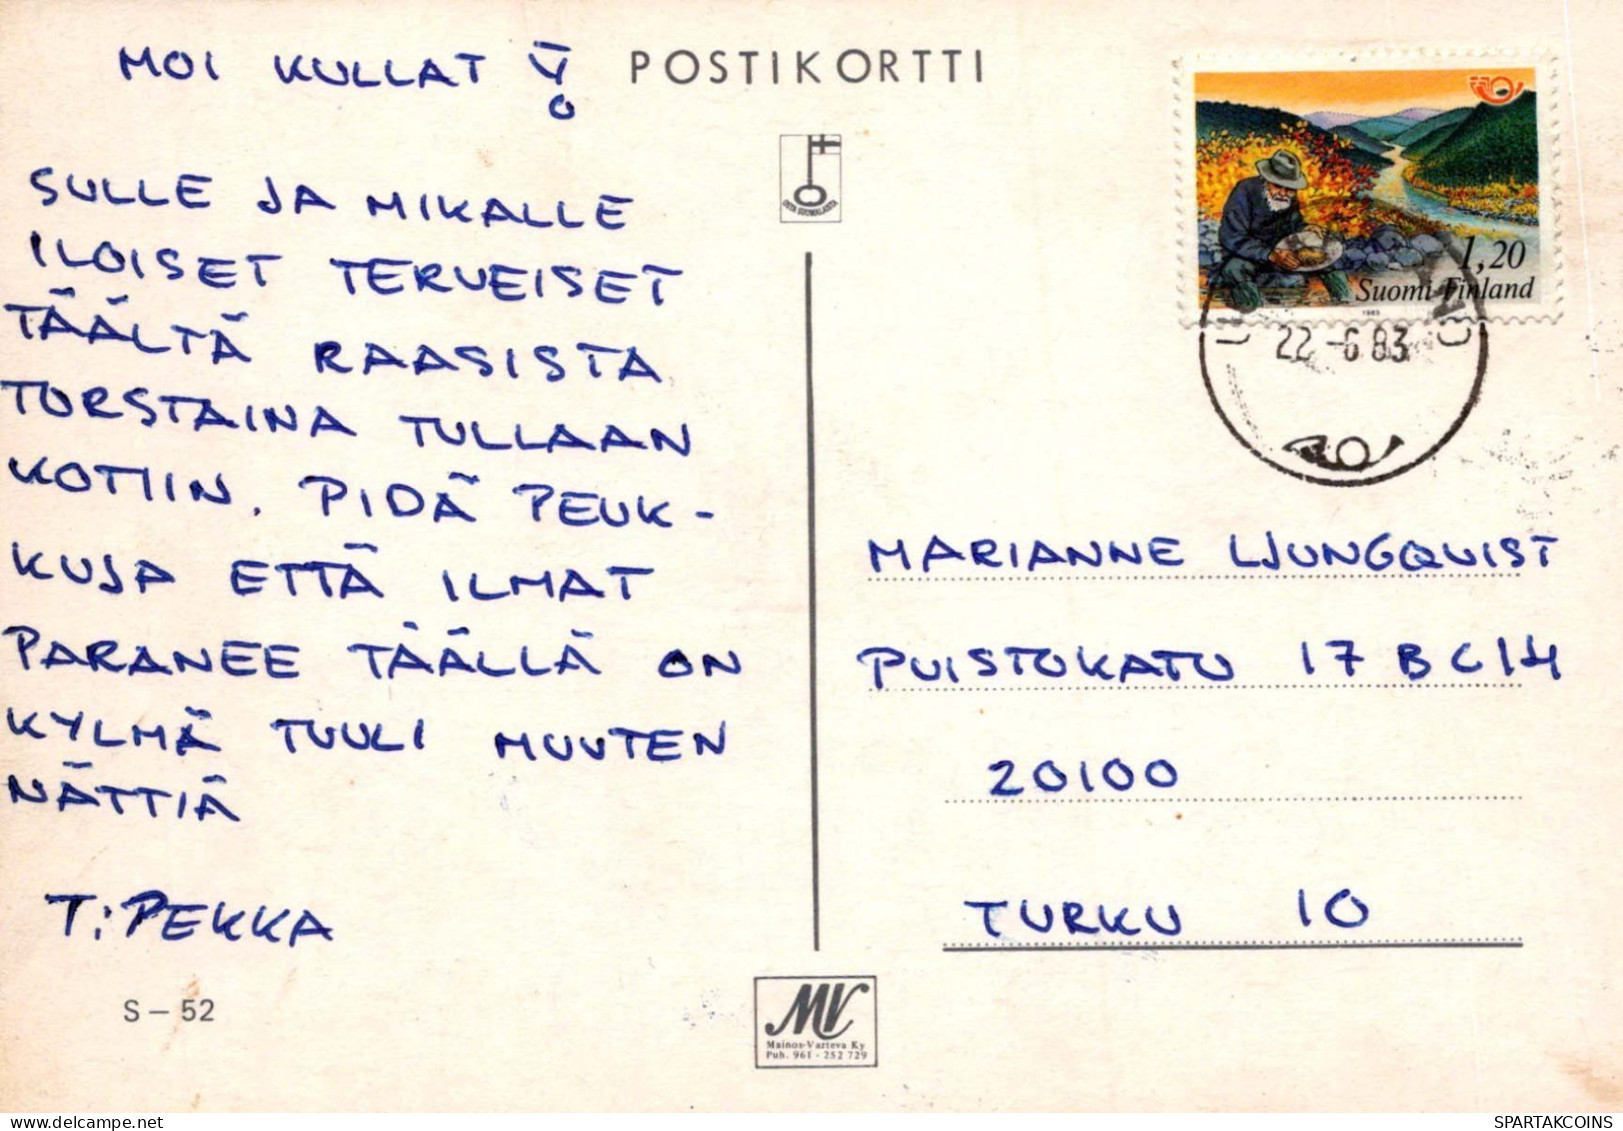 MOI KULLAT
POSTIKORTTI
OSTA SUOMALAISTA
SULLE JA MIKALLE
ILOISET TERVEISET
TÄÄLTÄ RAASISTA
TORSTAINA TULLAAN
KOTIIN. PIDÄ PEUK-
KUJA ETTÄ ILMAT
PARANEE TÄÄLLÄ ON
KYLMÄ TUULI MUUTEN
NÄTTIÄ
T: PEKKA
S – 52
MV
Mainos-Varteva Ky
Puh. 961 - 252 729
1,20
Suomi Finland
1983
22 -6 83
MARIANNE LJUNGQUIST
PUISTOKATU 17 B C 14
20100
TURKU 10
SPARTAKCOINS